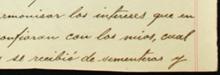 armonisar los intereses que en
onfiaran con los mios, cual
se recibió de sementeras y